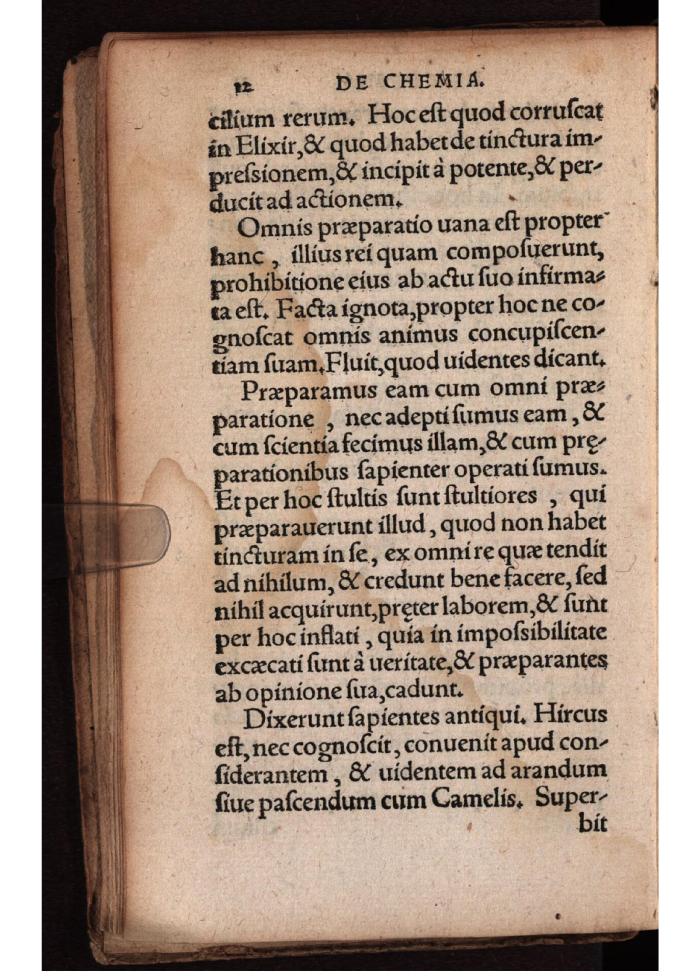 12 DE CHEMIA.
cilium rerum. Hoc est quod corruſcat
in Elixir, & quod habet de tinctura im-
preſsionem, & incipit à potente, & per-
ducit ad actionem.
Omnis præparatio uana eſt propter
hanc, illius rei quam compoſuerunt,
prohibitione eius ab actu ſuo infirma-
ta eſt. Facta ignota, propter hoc ne co-
gnoſcat omnis animus concupiſcen-
tiam ſuam. Fluit, quod uidentes dicant.
Præparamus eam cum omni præ-
paratione, nec adepti ſumus eam, &
cum ſcientia fecimus illam, & cum prę-
parationibus ſapienter operati ſumus.
Et per hoc ſtultis ſunt ſtultiores, qui
præparauerunt illud, quod non habet
tincturam in ſe, ex omni re quæ tendit
ad nihilum, & credunt bene facere, ſed
nihil acquirunt, pręter laborem, & ſunt
per hoc inflati, quia in impoſsibilitate
excæcati ſunt à ueritate, & præparantes
ab opinione ſua, cadunt.
Dixerunt ſapientes antiqui. Hircus
eſt, nec cognoſcit, conuenit apud con-
ſiderantem, & uidentem ad arandum
ſiue paſcendum cum Camelis. Super-
bit